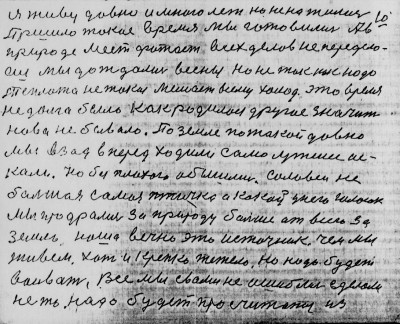 я живу давно и много лет но не нажился 10
Пришло такое время мы готовились
природе мест хватает всех делов не переделаеш
мы дождались весны но не так как надо
теплота не такая мешает всему холод. Это время
не долга было как родилось другое значит
нова не бывало. По земле по такой давно
мы взад вперед ходили само лутшие
Но бы плохого обошли. Соловей не
большая самая птичка а какой у него голосок
мы продрались за природу больше от всего за
землю, наша вечно это источник чем мы
живем, хоть и крепко тяжело, но надо будет
воиват, Все мы своими не ошибались сделали
не то, надо будет просчитать из